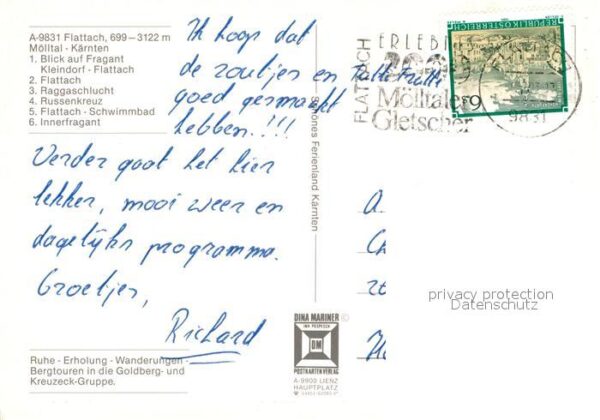 A-9831 Flattach, 699–3122 m
Mölltal - Kärnten
1. Blick auf Fragant
Kleindorf - Flattach
2. Flattach
3. Raggaschlucht
4. Russenkreuz
5. Flattach - Schwimmbad
6. Innerfragant
Ik hoop dat
de zoutjes en
goed gesmaakt
hebben!!!
Verder gaat het hier
lekker, mooi weer en
dagelijks programma.
Groetjes,
Richard
Ruhe - Erholung - Wanderungen -
Bergtouren in die Goldberg- und
Kreuzeck-Gruppe.
Schönes Ferienland Kärnten
DINA MARINER
DM
POSTKARTENVERLAG
A-9900 LIENZ
HAUPTPLATZ
FLATTACH
Mölltaler
Gletscher
REPUBLIK ÖSTERREICH
9831
privacy protection
Datenschutz